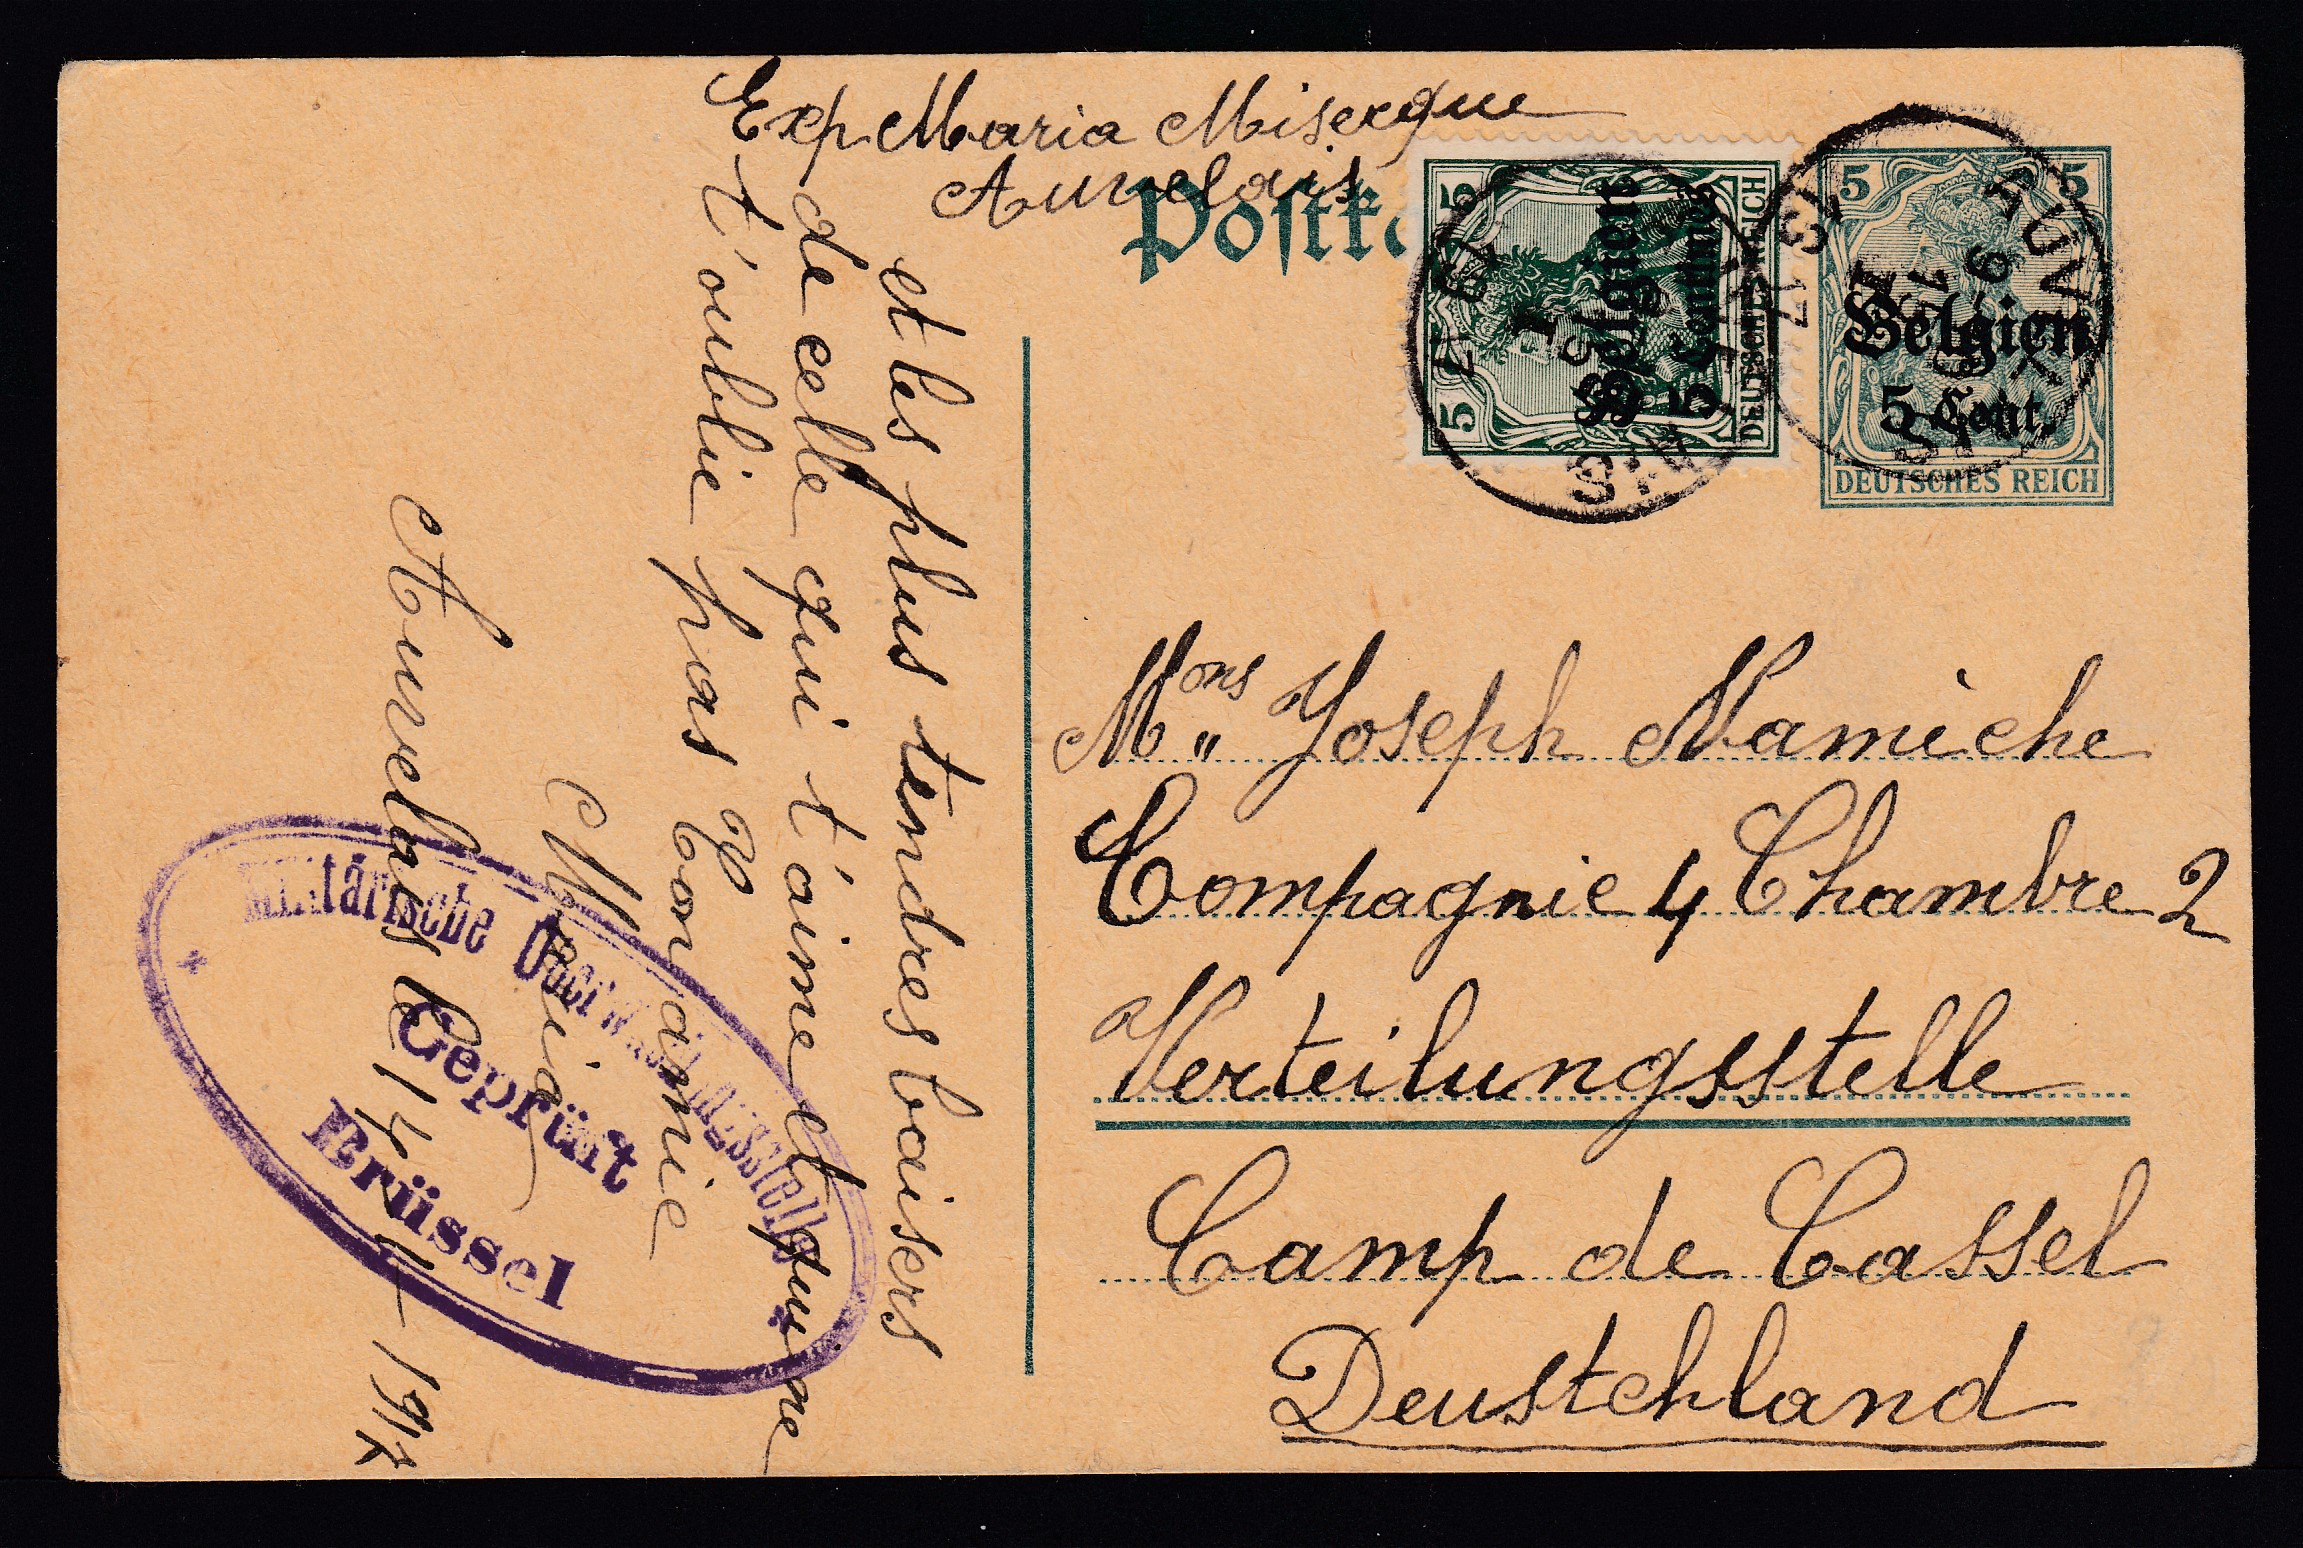 Exp Maria Miserque
Auvelais
Postka
5 5
Belgien
5 Centimes
DEUTSCHES REICH
5 5
Belgien
5 Cent.
DEUTSCHES REICH
Mons Joseph Namèche
Compagnie 4 Chambre 2
Verteilungsstelle
Camp de Cassel
Deustchland
et les plus tendres baisers
de celle qui t'aime et qui ne
t'oublie pas Ton amie
Maria
Auvelais le 14 1917
Militärische Überwachungsstelle
Geprüft
Brüssel